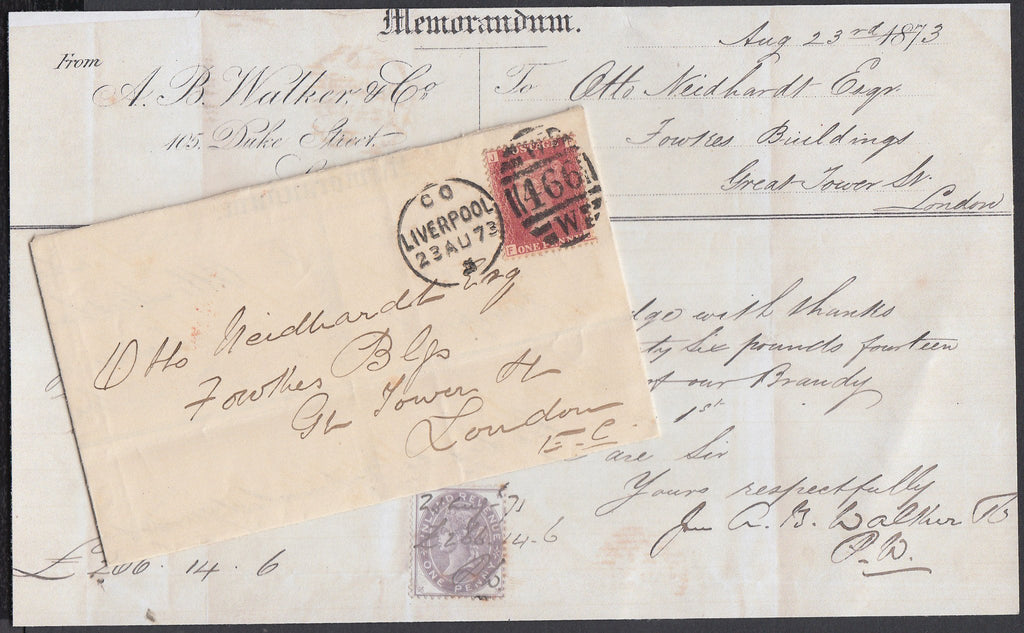 Memorandum.
Aug 23rd 1873
From
A. B. Walker, & Co
105, Duke Street
To Otto Neidhardt Esqr
Fowkes Buildings
Great Tower St.
London
CO
LIVERPOOL
23 AU 73
466
F ONE PENNY
Otto Neidhardt Esq
Fowkes Blgs
Gt Tower St
London
E.C.
with thanks
six pounds fourteen
our Brandy
1st
are Sir
Yours respectfully
A. B. Walker
P.W.
INLAND REVENUE
14.6
ONE PENNY
£ 14 . 6